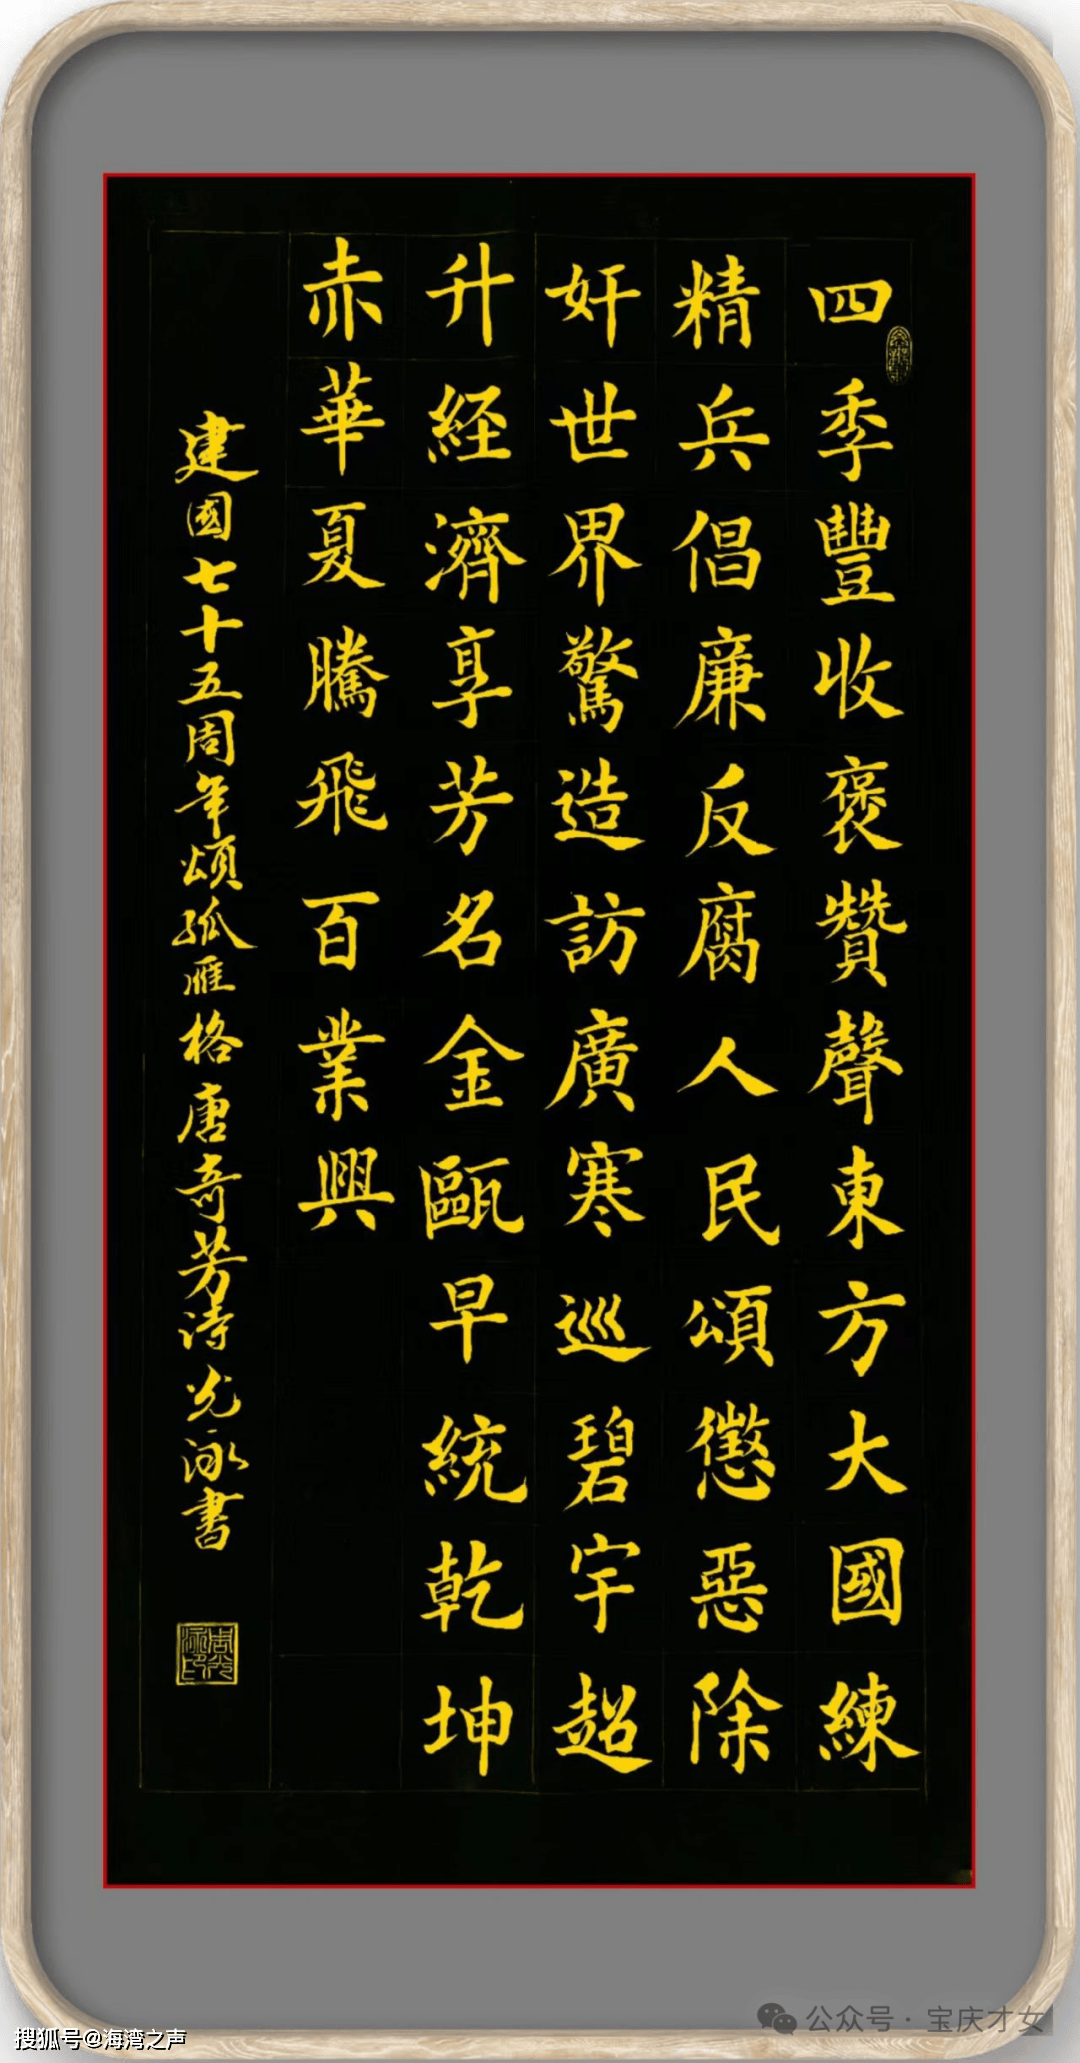 四季豐收褒贊聲東方大國練
精兵倡廉反腐人民頌懲惡除
奸世界驚造訪廣寒巡碧宇超
升経濟享芳名金甌早統乾坤
赤華夏騰飛百業興
建國七十五周年頌孤雁格唐奇芳诗光泳書
公众号·宝庆才女
搜狐号@海湾之声